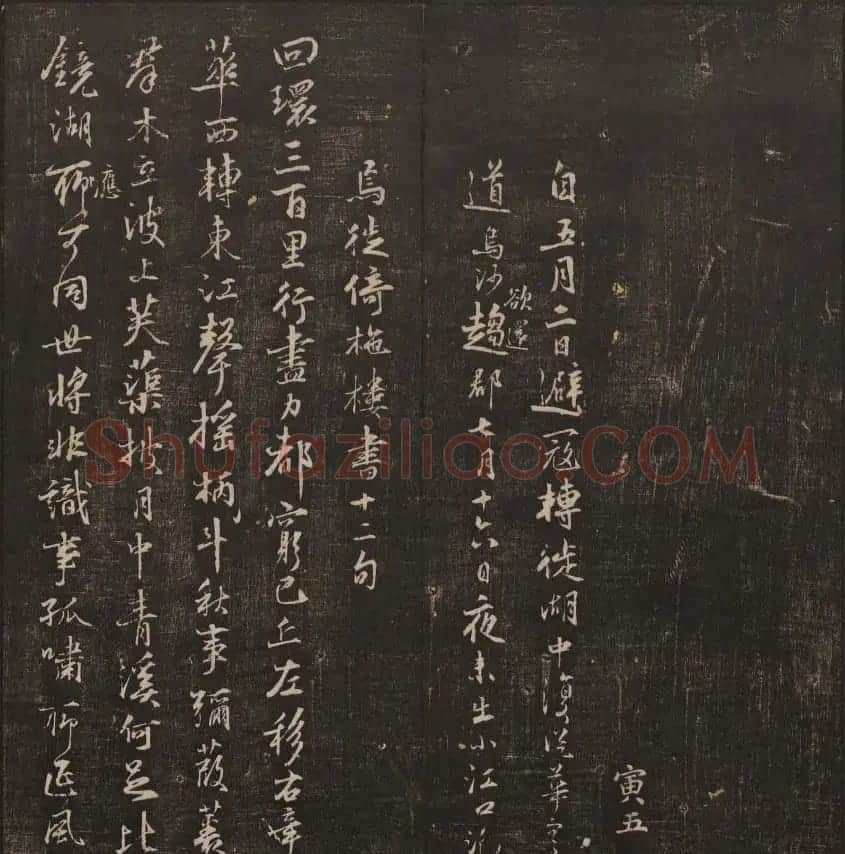 寅五
自五月二日避寇轉徙湖中復從華亭
道烏泖欲還趨郡七月十六日夜未出小江口泊
烏徙倚柂樓書十二句
回環三百里行盡力都窮已丘左移右嶂
華西轉東江聲搖柄斗秋事彌葭菼
犖木立波上芙蕖披月中青溪何足比
鏡湖聊應可同世將非識事孤嘯聊匠風
Shufaziliao.COM